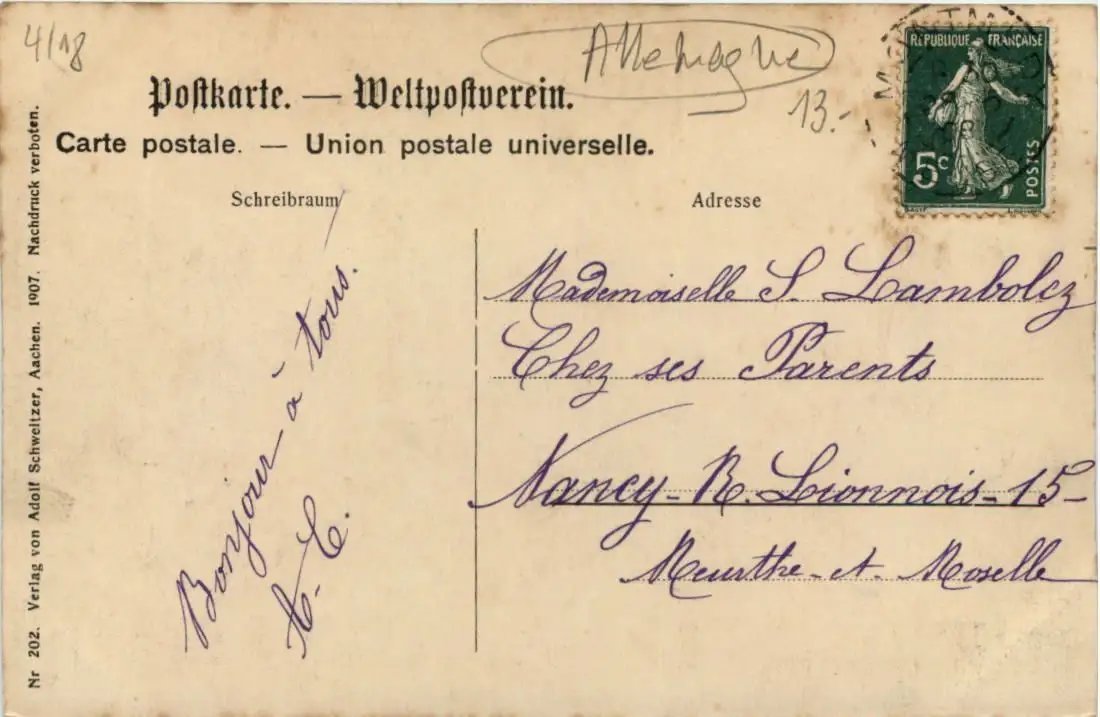 4/18
Allemagne
13.-
Postkarte. — Weltpostverein.
Carte postale. — Union postale universelle.
RÉPUBLIQUE FRANÇAISE
5c
POSTES
Schreibraum
Adresse
Bonjour à tous.
Mademoiselle S. Lambolez
Chez ses Parents
Nancy - R. Lionnois - 15 -
Meurthe-et-Moselle
Nr 202. Verlag von Adolf Schweitzer, Aachen. 1907. Nachdruck verboten.